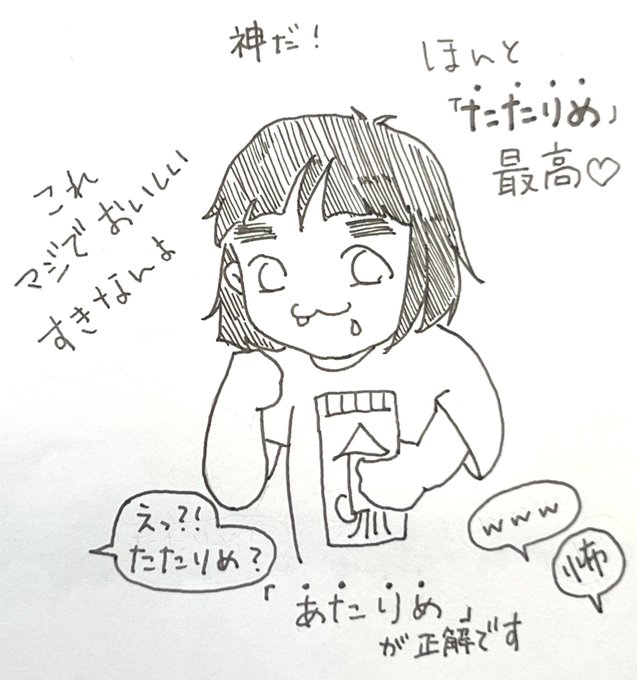 神だ!
ほんと
「たたりめ」
最高♡
これ
マジでおいしい
すきなんよ
えっ?!
たたりめ?
www
怖
「あたりめ」
が正解です